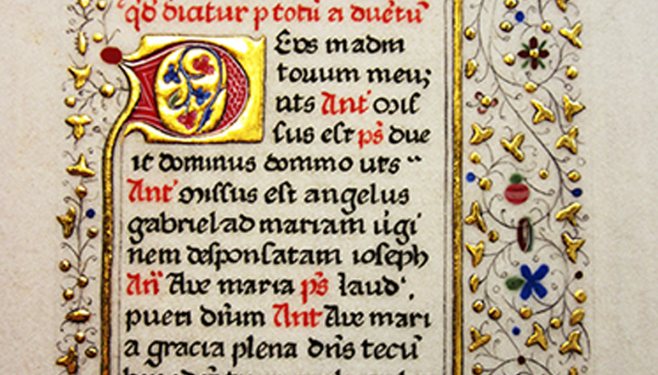 qd̄ dicitur p totū aduētū
Deus in adiu
torium meu;
uts Ant' Mis
sus est ps̄ due
it dominus dommo uts
Ant' Missus est angelus
gabriel ad mariam ūgi
nem desponsatam ioseph
An̄ Aue maria ps̄ laud'.
pueri dn̄m Ant Aue mari
a gracia plena dn̄s tecū